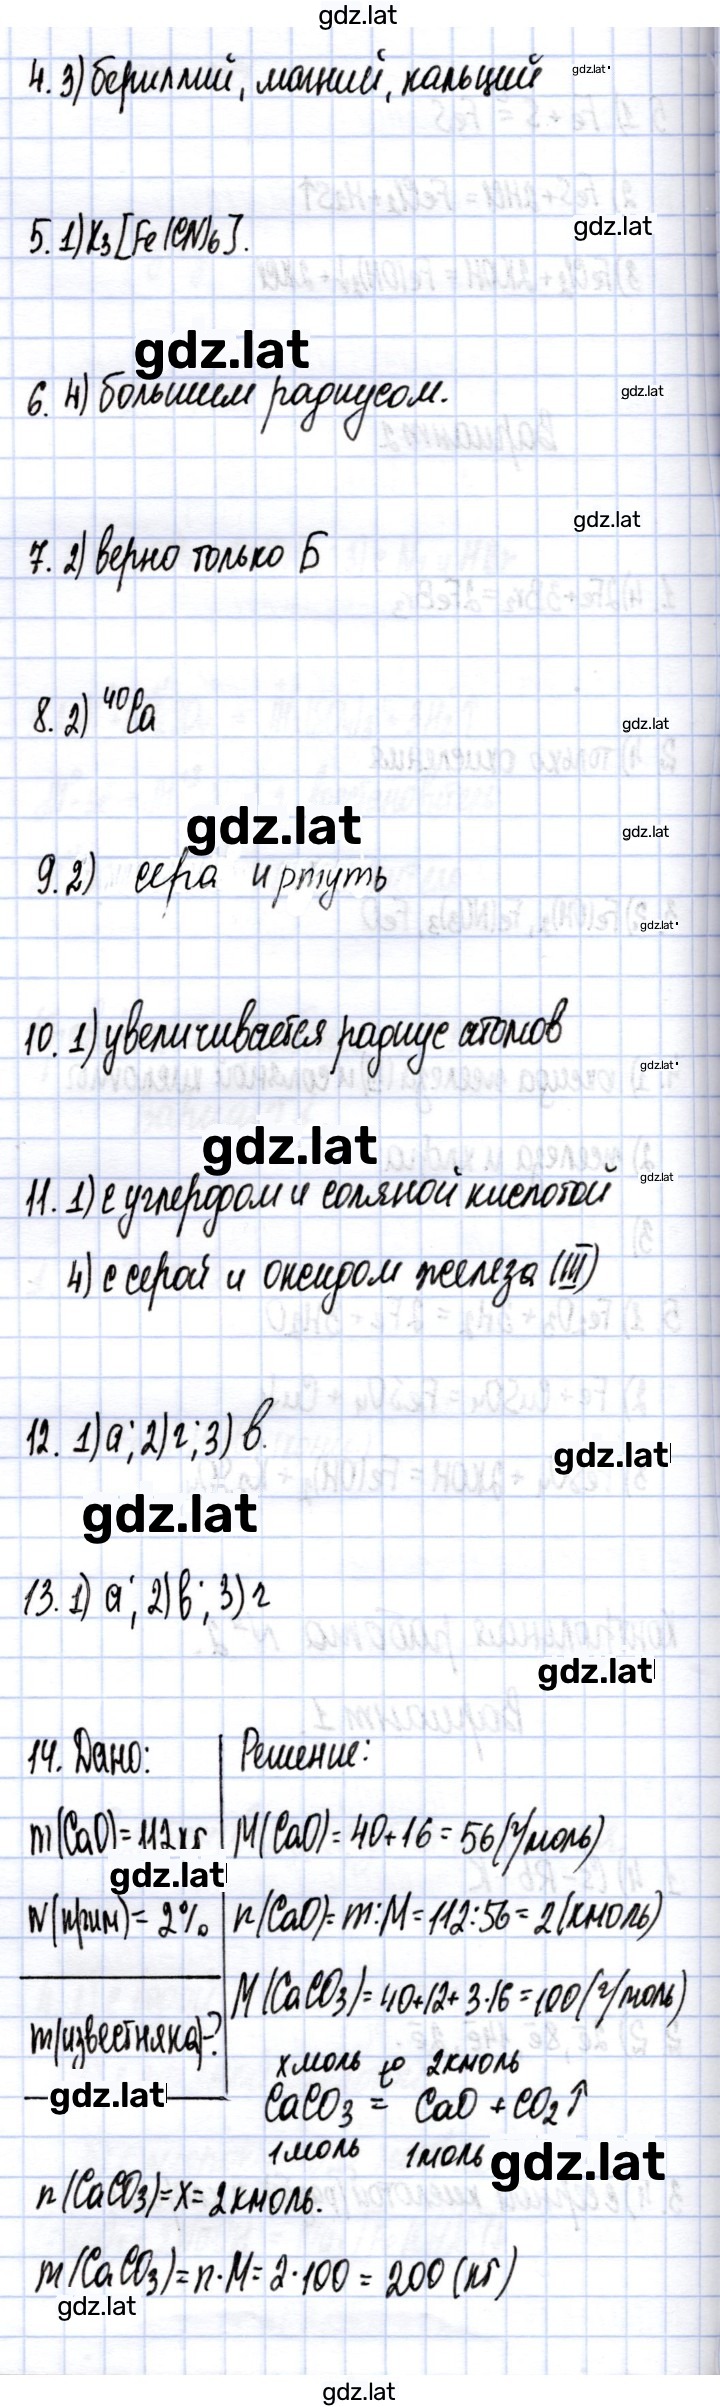 gdz.lat
4. 3) бериллий, магний, кальций
gdz.lat
5. 1) K₃[Fe(CN)₆].
gdz.lat
gdz.lat
6. 4) большим радиусом.
gdz.lat
gdz.lat
7. 2) верно только Б
8. 2) ⁴⁰Ca
gdz.lat
gdz.lat
gdz.lat
9. 2) сера и ртуть
gdz.lat
10. 1) увеличивается радиус атомов
gdz.lat
gdz.lat
gdz.lat
11. 1) с углеродом и соляной кислотой
4) с серой и оксидом железа (III)
12. 1) а; 2) г; 3) в.
gdz.lat
gdz.lat
13. 1) а; 2) в; 3) г
gdz.lat
14. Дано: Решение:
m(CaO)=112кг M(CaO)=40+16=56(г/моль)
gdz.lat
w(прим)=2% n(CaO)=m:M=112:56=2(кмоль)
M(CaCO₃)=40+12+3·16=100(г/моль)
m(известняка)-?
xмоль t° 2кмоль
gdz.lat
CaCO₃ = CaO + CO₂↑
1моль 1моль
gdz.lat
n(CaCO₃)=x=2кмоль.
m(CaCO₃)=n·M=2·100=200(кг)
gdz.lat
gdz.lat